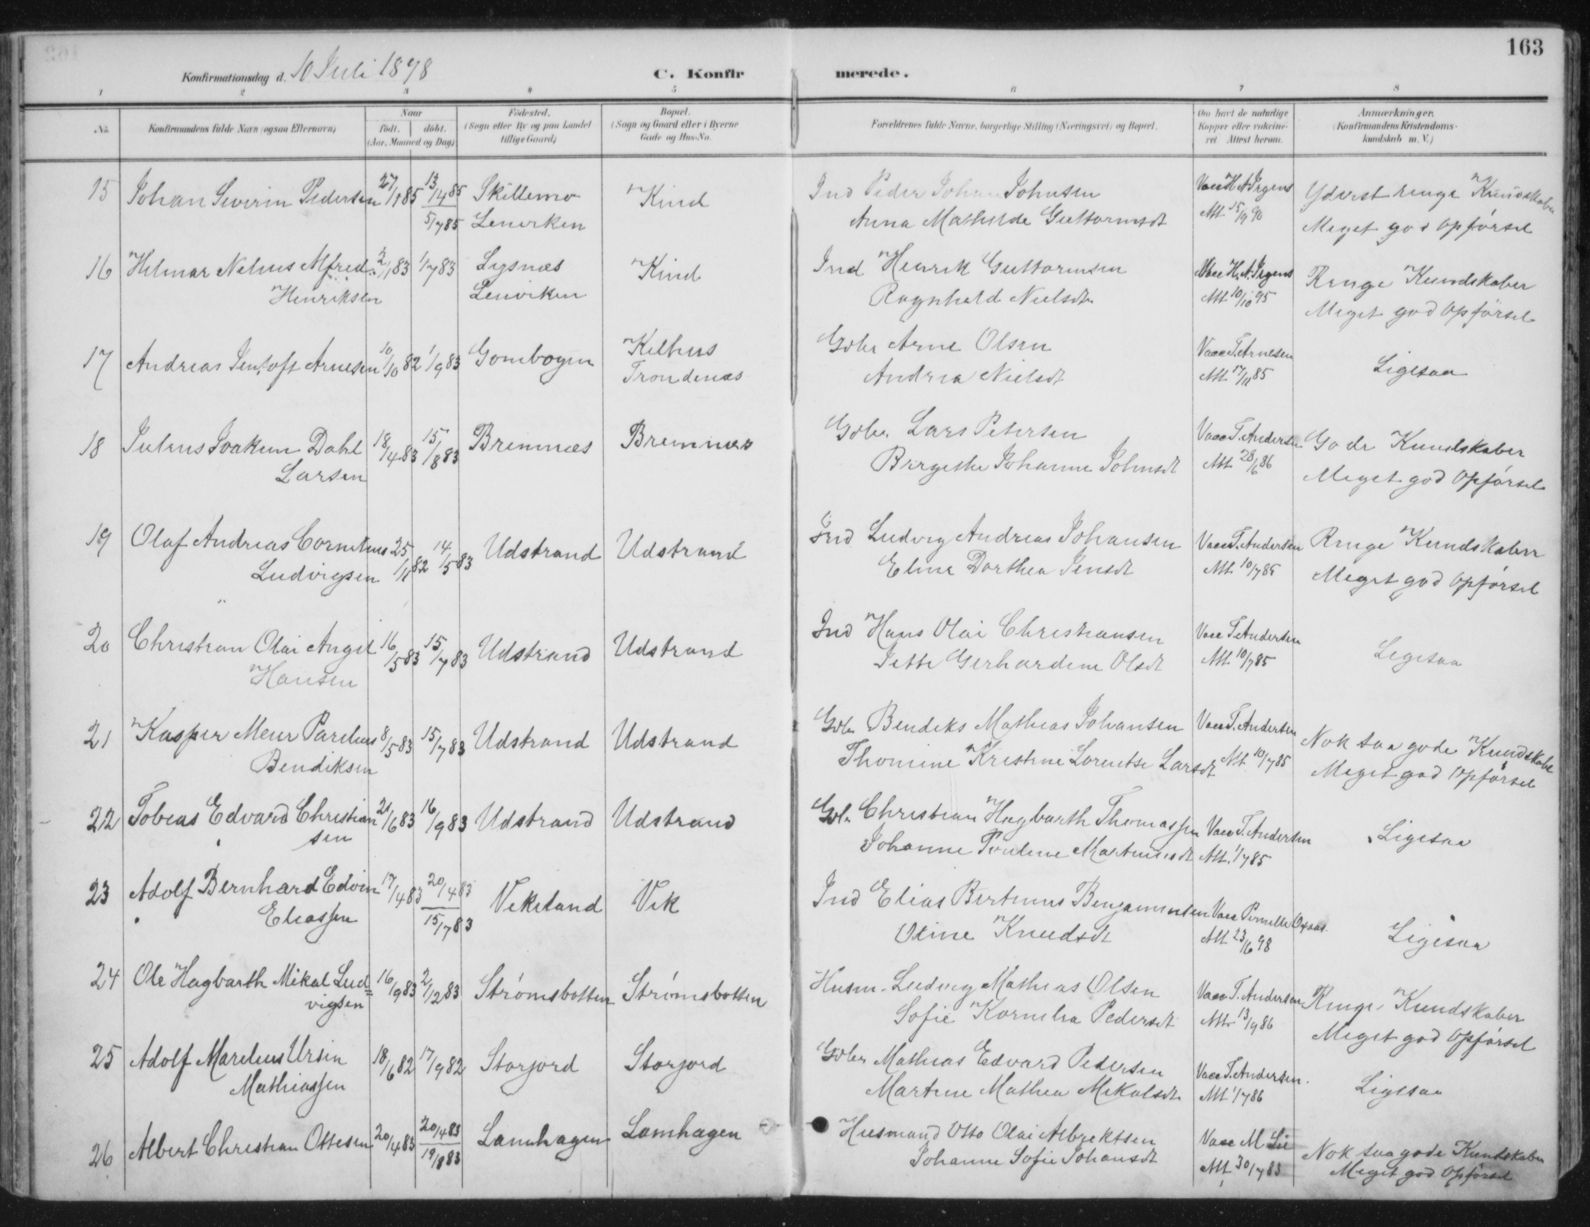 163
Konfirmationsdag d. 10 Juli 1898 C. Konfirmerede.
1 2 3 4 5 6 7 8
No. Konfirmandens fulde Navn (ogsaa Efternavn) Naar født. døbt. (Aar, Maaned og Dag) Fødested. (Sogn eller By og paa Landet tillige Gaard) Bopæl. (Sogn og Gaard eller i Byerne Gade og Hus-No. Forældrenes fulde Navne, borgerlige Stilling (Næringsvei) og Bopæl. Om havt de naturlige Kopper eller vakcineret Attest herom. Anmærkninger. (Konfirmandens Kristendomskundskab m. V.)
15 Johan Severin Pedersen 27/1 85 13/4 85 Skillemo Kind Ind Peder Johan Johnsen Vacc H.A. Irgens Yderst ringe Kundskaber
5/7 85 Lenviken Anna Mathilde Guttormsdt Att. 15/9 90 Meget god Opførsel
16 Hilmar Nelius Alfred 2/1 83 1/7 83 Lysnæs Kind Ind Henrik Guttormsen Vacc H.A. Irgens Ringe Kundskaber
Henriksen Lenviken Ragnhild Nielsdt Att. 10/10 95 Meget god Opførsel
17 Andreas Jentoft Arnesen 10/10 82 1/9 83 Gombogen Kilhus Gbr Arne Olsen Vacc T. Arnesen Ligesaa
Trondenæs Andrea Nielsdt Att. 17/11 85
18 Julius Joakim Dahl 18/4 83 15/8 83 Bremnæs Bremnæs Gbr. Lars Petersen Vacc T. Andersen Gode Kundskaber
Larsen Birgithe Johanne Johnsdt Att. 28/6 86 Meget god Opførsel
19 Olaf Andreas Cornelius 25/11 82 14/5 83 Udstrand Udstrand Ind Ludvig Andreas Johansen Vacc T. Andersen Ringe Kundskaber
Ludvigsen Eline Dorthea Jensdt Att. 10/7 85 Meget god Opførsel
20 Christian Olai Angel 16/5 83 15/7 83 Udstrand Udstrand Ind Hans Olai Christiansen Vacc T. Andersen Ligesaa
Hansen Jette Gerhardine Olsdt Att. 10/7 85
21 Kasper Meier Parelius 8/5 83 15/7 83 Udstrand Udstrand Gbr Bendiks Mathias Johansen Vacc T. Andersen Nok saa gode Kundskaber
Bendiksen Thomine Kristine Lorentse Larsdt Att. 10/7 85 Meget god Opførsel
22 Tobias Edvard Christian 21/6 83 16/9 83 Udstrand Udstrand Gbr. Christian Hagbarth Thomassen Vacc T. Andersen Ligesaa
sen Johanne Pauline Martinusdt Att. 1/7 85
23 Adolf Bernhard Edvin 17/4 83 20/4 83 Vikeland Vik Ind Elias Bertinus Benjaminsen Vacc Oxaas Ligesaa
Eliassen 15/7 83 Oline Knudsdt Att. 23/6 98
24 Ole Hagbarth Mikal Lud= 16/9 83 2/12 83 Strømsbotten Strømsbotten Husm. Ludvig Mathias Olsen Vacc T. Andersen Ringe Kundskaber
vigsen Sofie Kornelia Pedersdt Att. 13/9 86 Meget god Opførsel
25 Adolf Marelius Ursin 18/6 82 17/9 82 Storjord Storjord Gbr Mathias Edvard Pedersen Vacc T. Andersen. Ligesaa
Mathiassen Martine Mathea Mikalsdt. Att. 1/7 86
26 Albert Christian Ottesen 20/4 83 20/4 83 Lamhagen Lamhagen Husmand Otto Olai Albrektsen Vacc M Lie Nok saa gode Kundskaber
19/8 83 Johanne Sofie Johansdt Att. 30/7 83 Meget god Opførsel